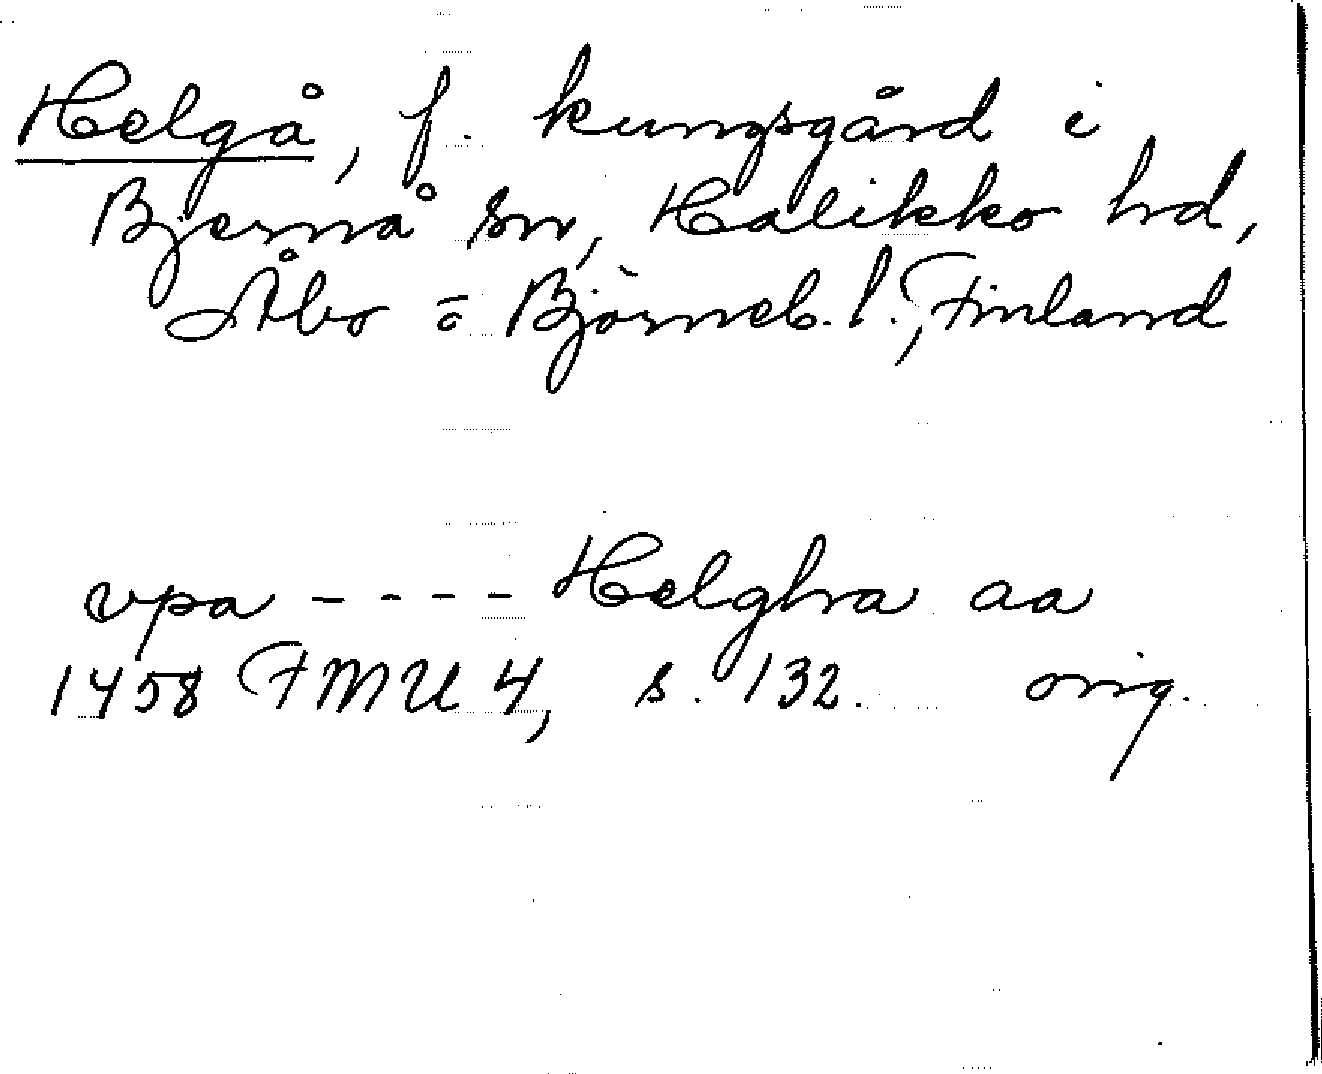 Helgå, f. kungsgård i
Bjernå sn, Halikko hd,
Åbo o Björneb. l., Finland
vpa - - - - Helghra aa
1458 FMU 4, s. 132. orig.